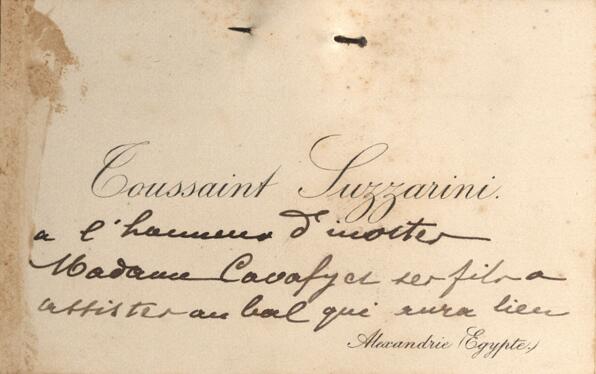 Toussaint Suzzarini.
a l'honneur d'inviter
Madame Cavafy et ses fils a
assister au bal qui aura lieu
Alexandrie (Egypte.)